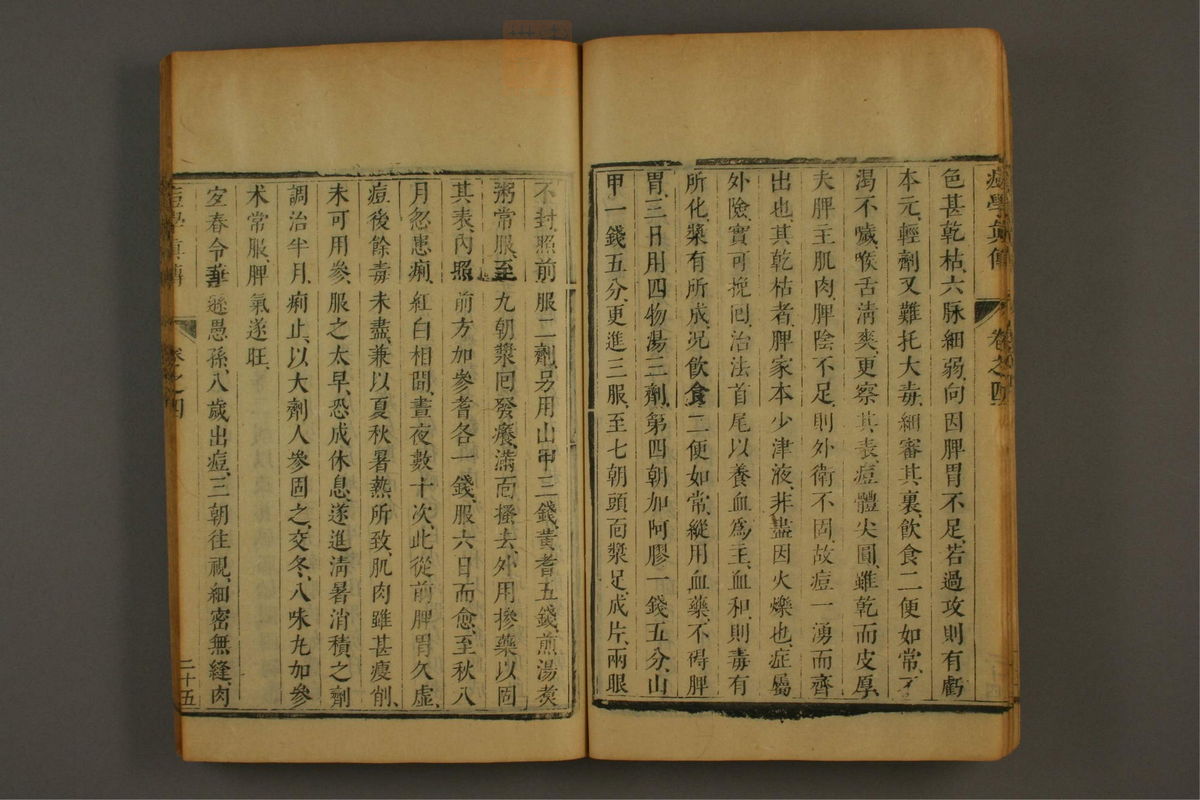 痘學眞傳
卷之四
色甚乾枯六脉細弱向因脾胃不足若過攻則有虧
本元輕劑又難托大毒細審其裏飲食二便如常不
渴不嗽喉舌淸爽更察其表痘體尖圓雖乾而皮厚
夫脾主肌肉脾陰不足則外衛不固故痘一湧而齊
出也其乾枯者脾家本少津液非盡因火爍也症屬
外險實可挽囘治法首尾以養血爲主血和則毒有
所化漿有所成况飲食二便如常縱用血藥不碍脾
胃三日用四物湯三劑第四朝加阿膠一錢五分山
甲一錢五分更進三服至七朝頭面漿足成片兩眼
不封照前服二劑另用山甲三錢黄耆五錢煎湯煑
粥常服至九朝漿囘發癢滿面搔去外用摻藥以固
其表內照前方加參耆各一錢服六日而愈至秋八
月忽患痢紅白相間晝夜數十次此從前脾胃久虛
痘後餘毒未盡兼以夏秋暑熱所致肌肉雖甚瘦削
未可用參服之太早恐成休息遂進淸暑消積之劑
調治半月痢止以大劑人參固之交冬八味丸加參
术常服脾氣遂旺
宜春令遜愚孫八歲出痘三朝往視細密無縫肉
痘學眞傳
卷之四
二十五